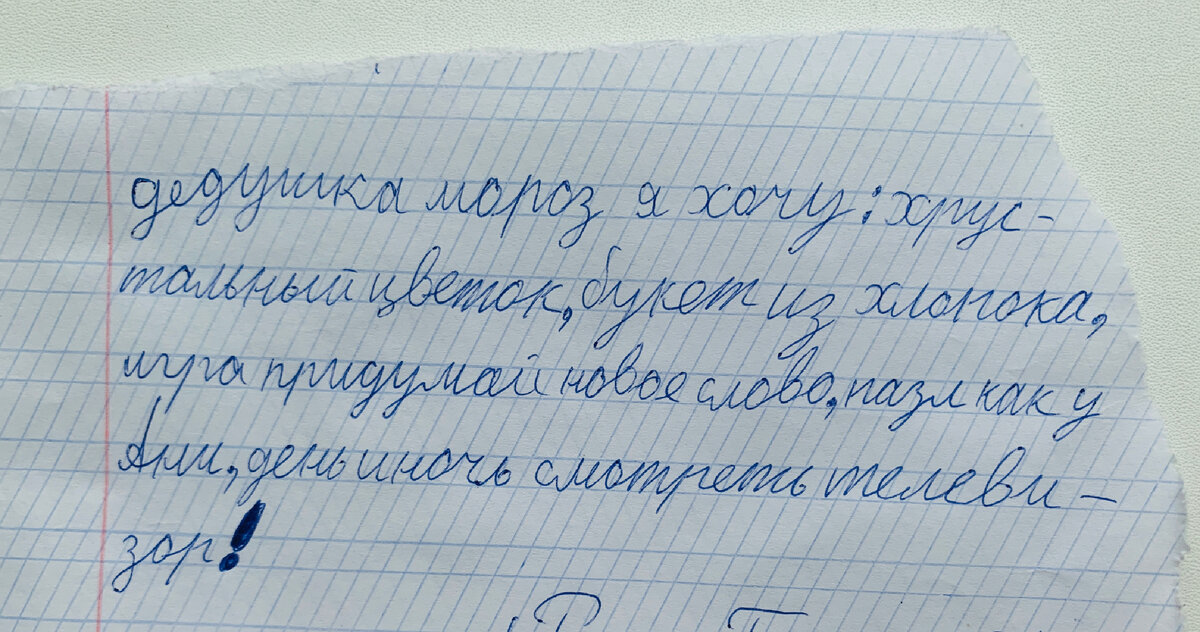 дедушка мороз я хочу: хрус-
тальный цветок, букет из хлопока,
игра придумай новое слово, пазл как у
Ани, день и ночь смотреть телеви-
зор!